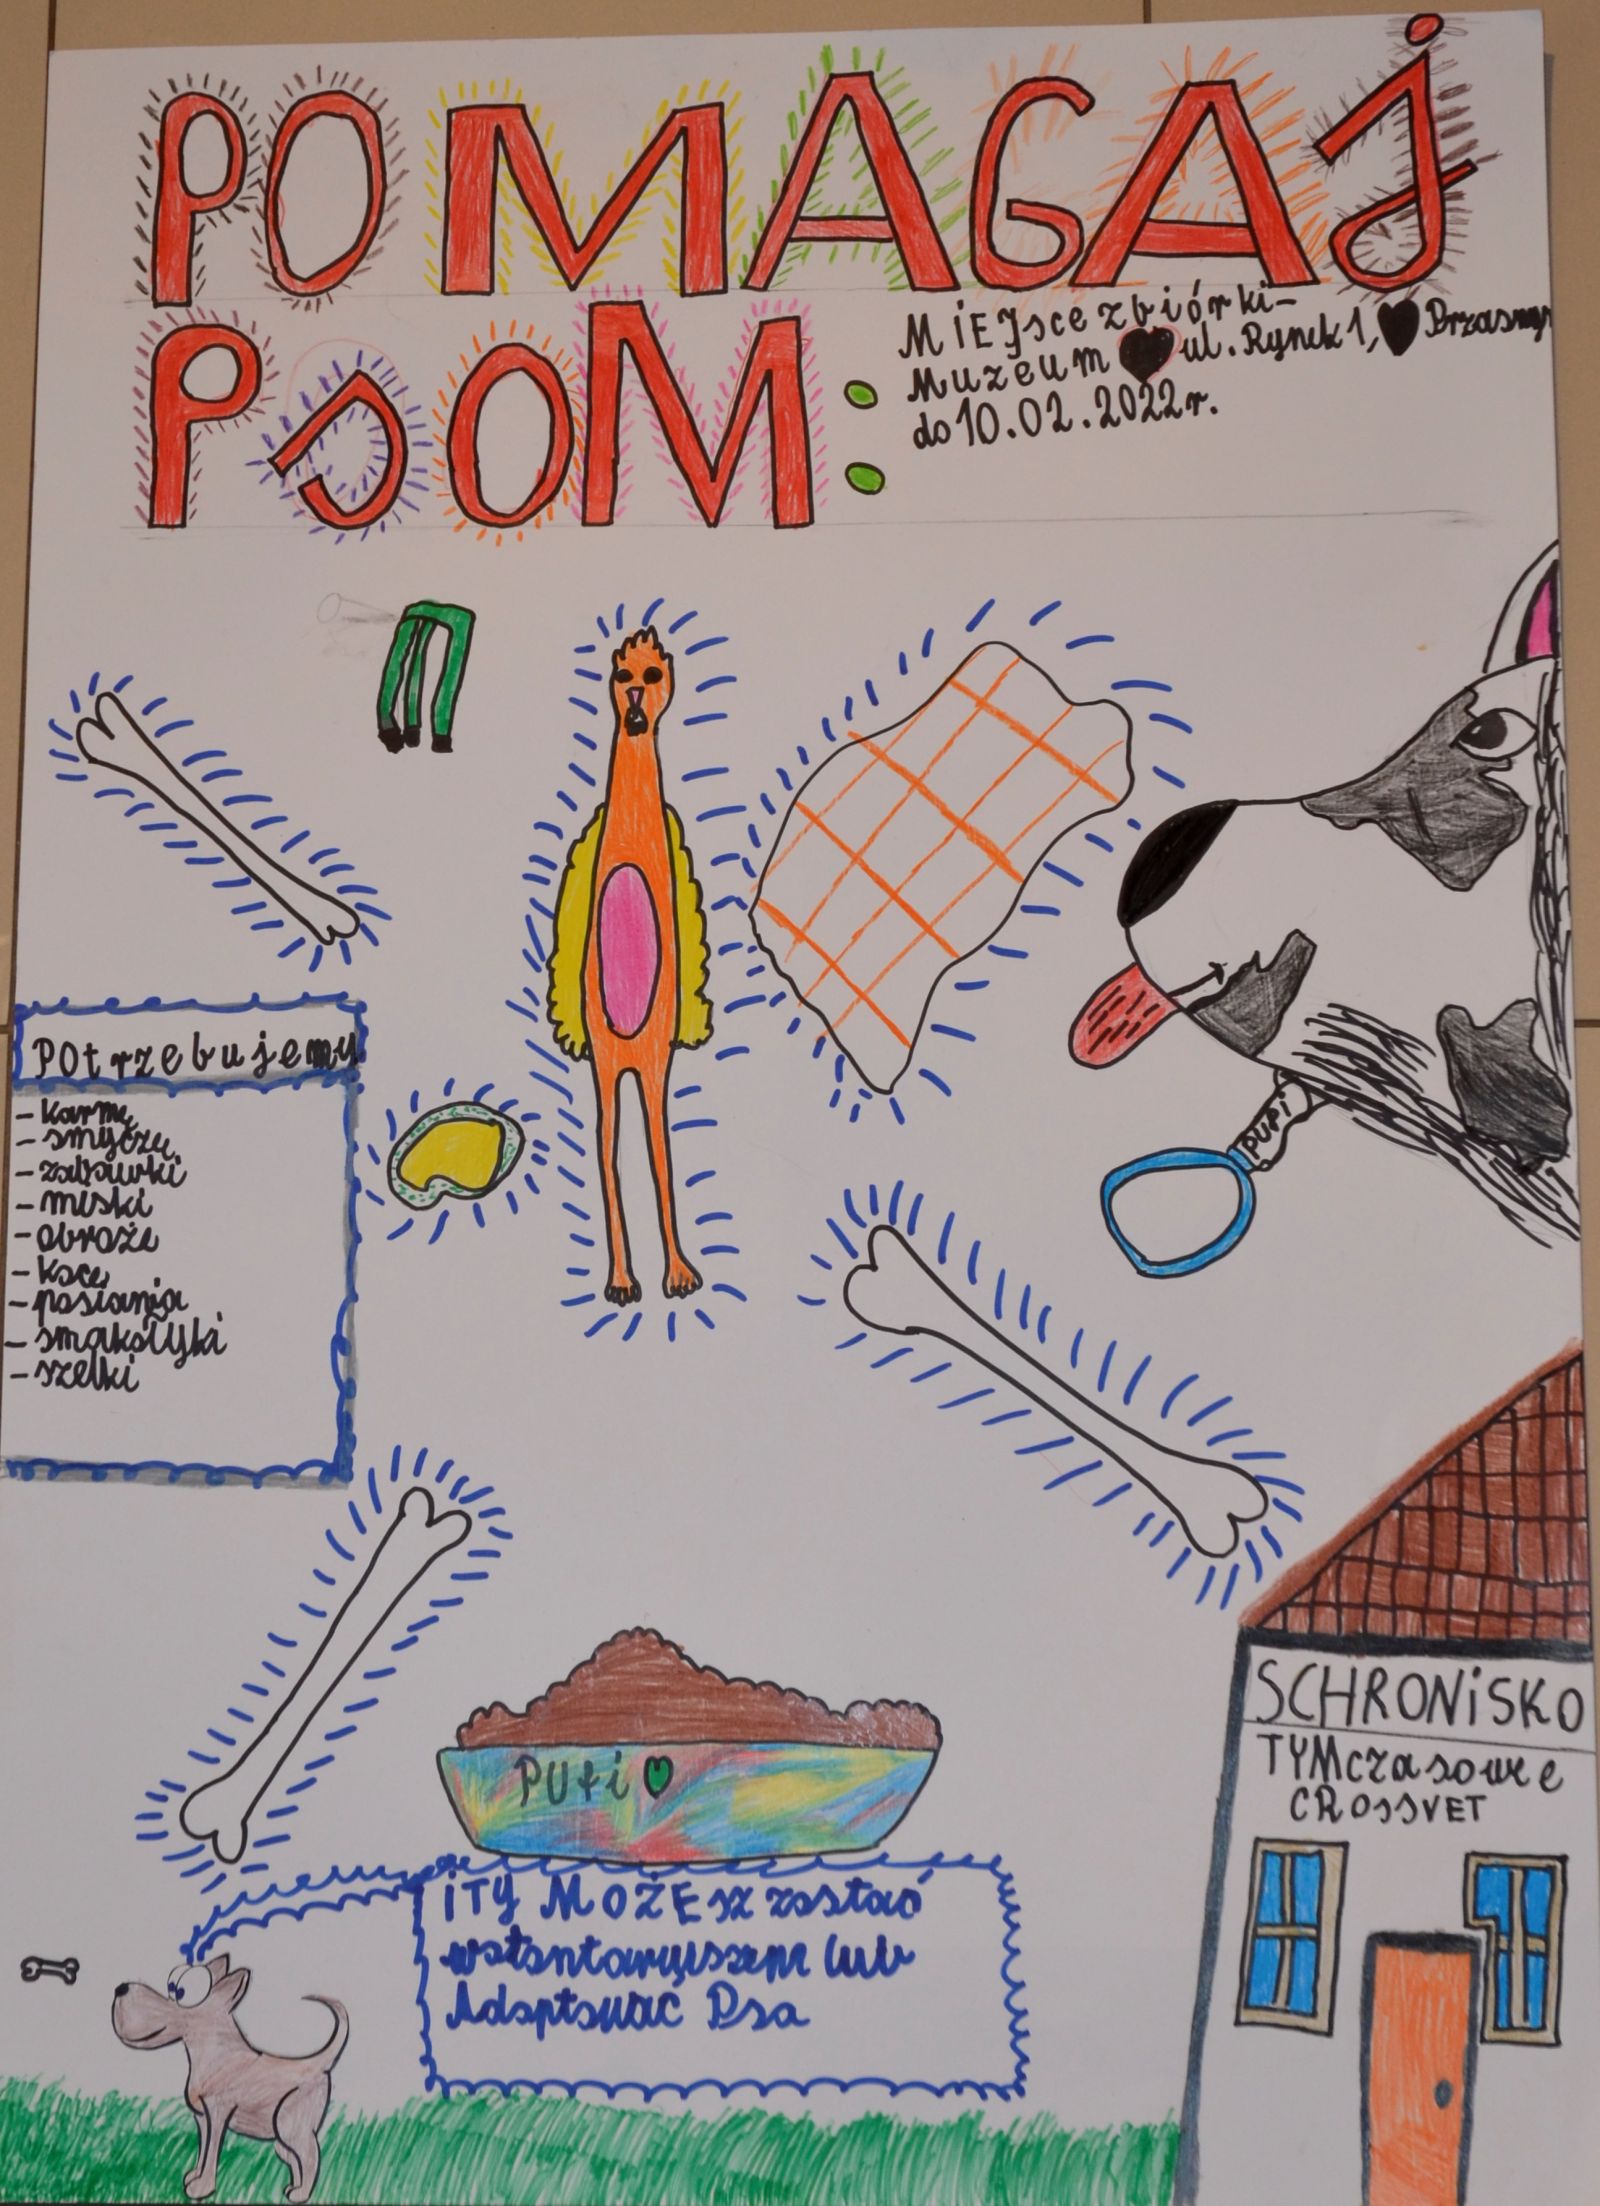 POMAGAJ
PSOM:
MiEJsce zbiórki-
Muzeum ul. Rynek 1, Przasnysz
do 10.02.2022r.
POtrzebujemy
- karmę
- smyczy
- zabawki
- miski
- obroże
- koce
- posłania
- smakołyki
- szelki
PUFi
SCHRONiSKO
TYMczasowe
CROSSVET
PUFi
i TY MOŻEsz zostać
wolontariuszem lub
Adoptować Psa